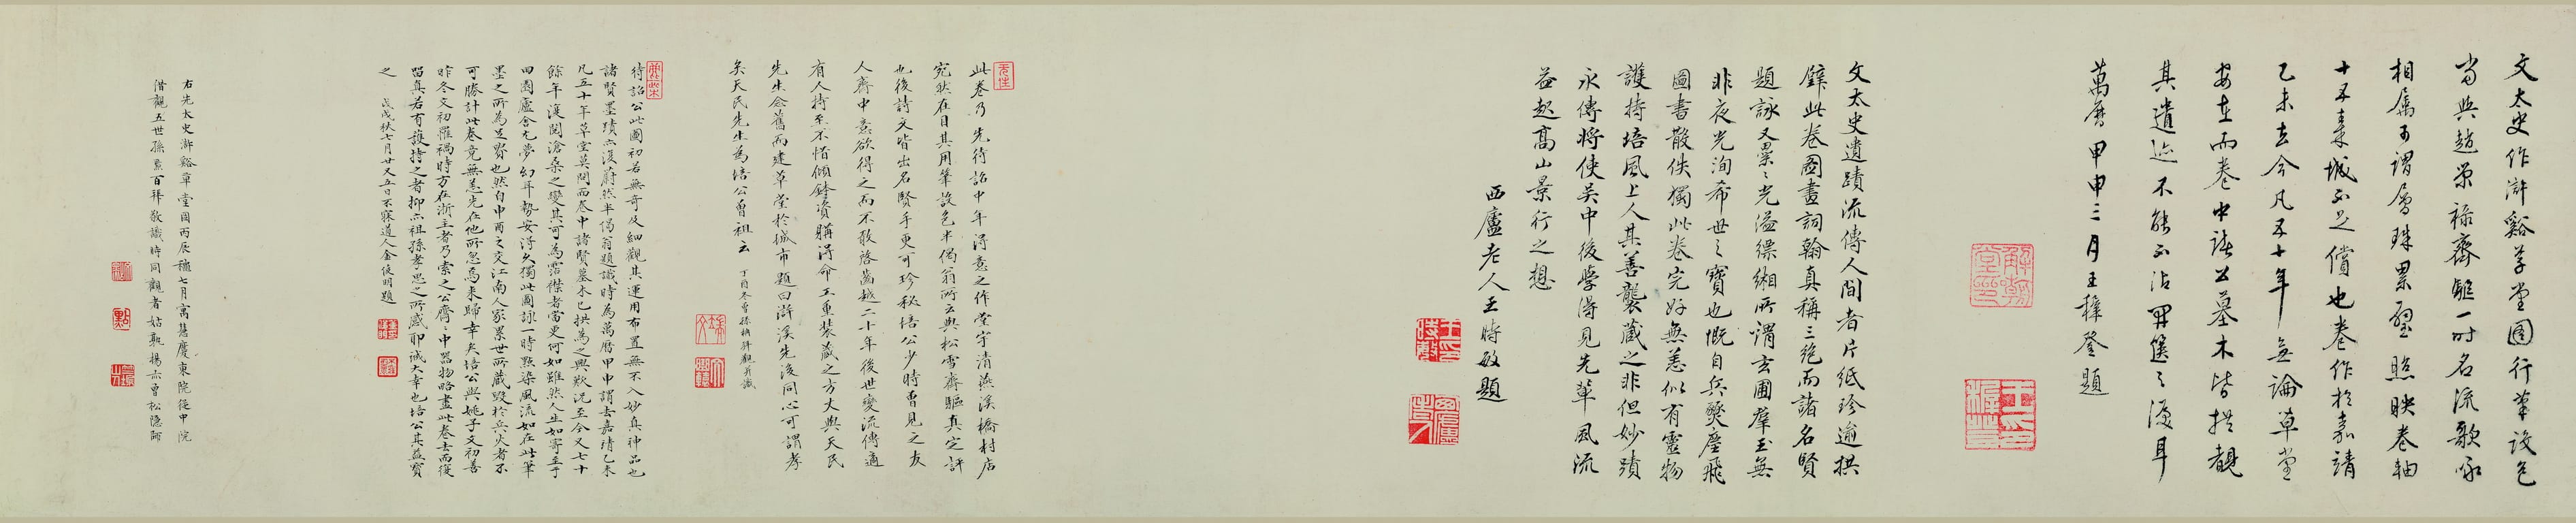 文太史作滸谿草堂圖行筆設色
當與趙榮祿齊驅一時名流歌咏
相屬可謂層珠累璧照映卷軸
十五連城不足償也卷作於嘉靖
乙未去今凡五十年無論草堂
安在而卷中諸公墓木皆拱覩
其遺迹不能不沾巾篋之濅耳
萬曆甲申三月王穉登題
文太史遺蹟流傳人間者片紙珍逾拱
璧此卷圖畫詞翰真稱三絶而諸名賢
題詠又纍纍光溢縹緗所謂玄圃羣玉無
非夜光洵希世之寶也慨自兵燹塵飛
圖書散佚獨此卷完好無恙似有靈物
護持培風上人其善襲藏之非但妙蹟
永傳將使吴中後學得見先輩風流
益起高山景行之想
西廬老人王時敏題
此卷乃先待詔中年得意之作堂宇清燕溪橋村店
宛然在目其用筆設色半偈翁所云與松雪齋驅真定評
也後詩文皆出名賢手更可珍秘培公少時曾見之友
人齋中意欲得之而不敢啓齒越二十年後世變流傳適
有人持至不惜傾鉢資購得命工重裝藏之方丈與天民
先生念舊而建草堂於城市題曰滸溪先後同心可謂孝
矣天民先生為培公曾祖云 丁酉冬曾孫柟拜觀并識
待詔公此圖初若無奇及細觀其運用布置無不入妙真神品也
諸賢墨蹟亦復蔚然半偈翁題識時為萬曆甲申謂去嘉靖乙未
凡五十年草堂莫問而卷中諸賢墓木已拱為之興歎況至今又七十
餘年渡閱滄桑之變其可為霑襟者當更何如雖然人生如寄至于
田園廬舍尤夢幻耳勢安得久獨此圖詠一時點染風流如在此筆
墨之所為足貴也然自申酉之交江南人家累世所藏毀於兵火者不
可勝計此卷竟無恙先在他所忽焉來歸幸矣培公與姚子文初善
昨冬文初罹禍時方在浙主者乃索之公齋齋中器物略盡此卷去而復
留真若有護持之者抑亦祖孫孝思之所感耶誠大幸也培公其益寶
之 戊戌秋七月廿又五日不寐道人金俊明題
右先太史滸谿草堂圖丙辰穐七月寓舊慶東院從中院
借觀五世孫點百拜敬識時同觀者姑孰楊亦曾松隱師